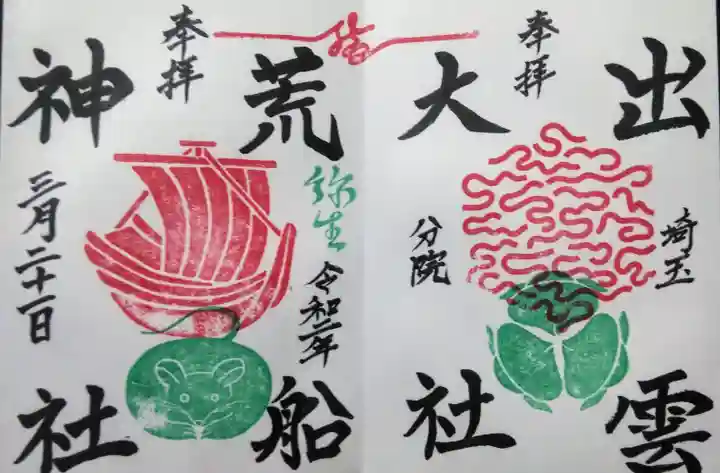 奉拝
出雲
大社
埼玉
分院
奉拝
荒船
神社
弥生
令和二年
三月二十一日